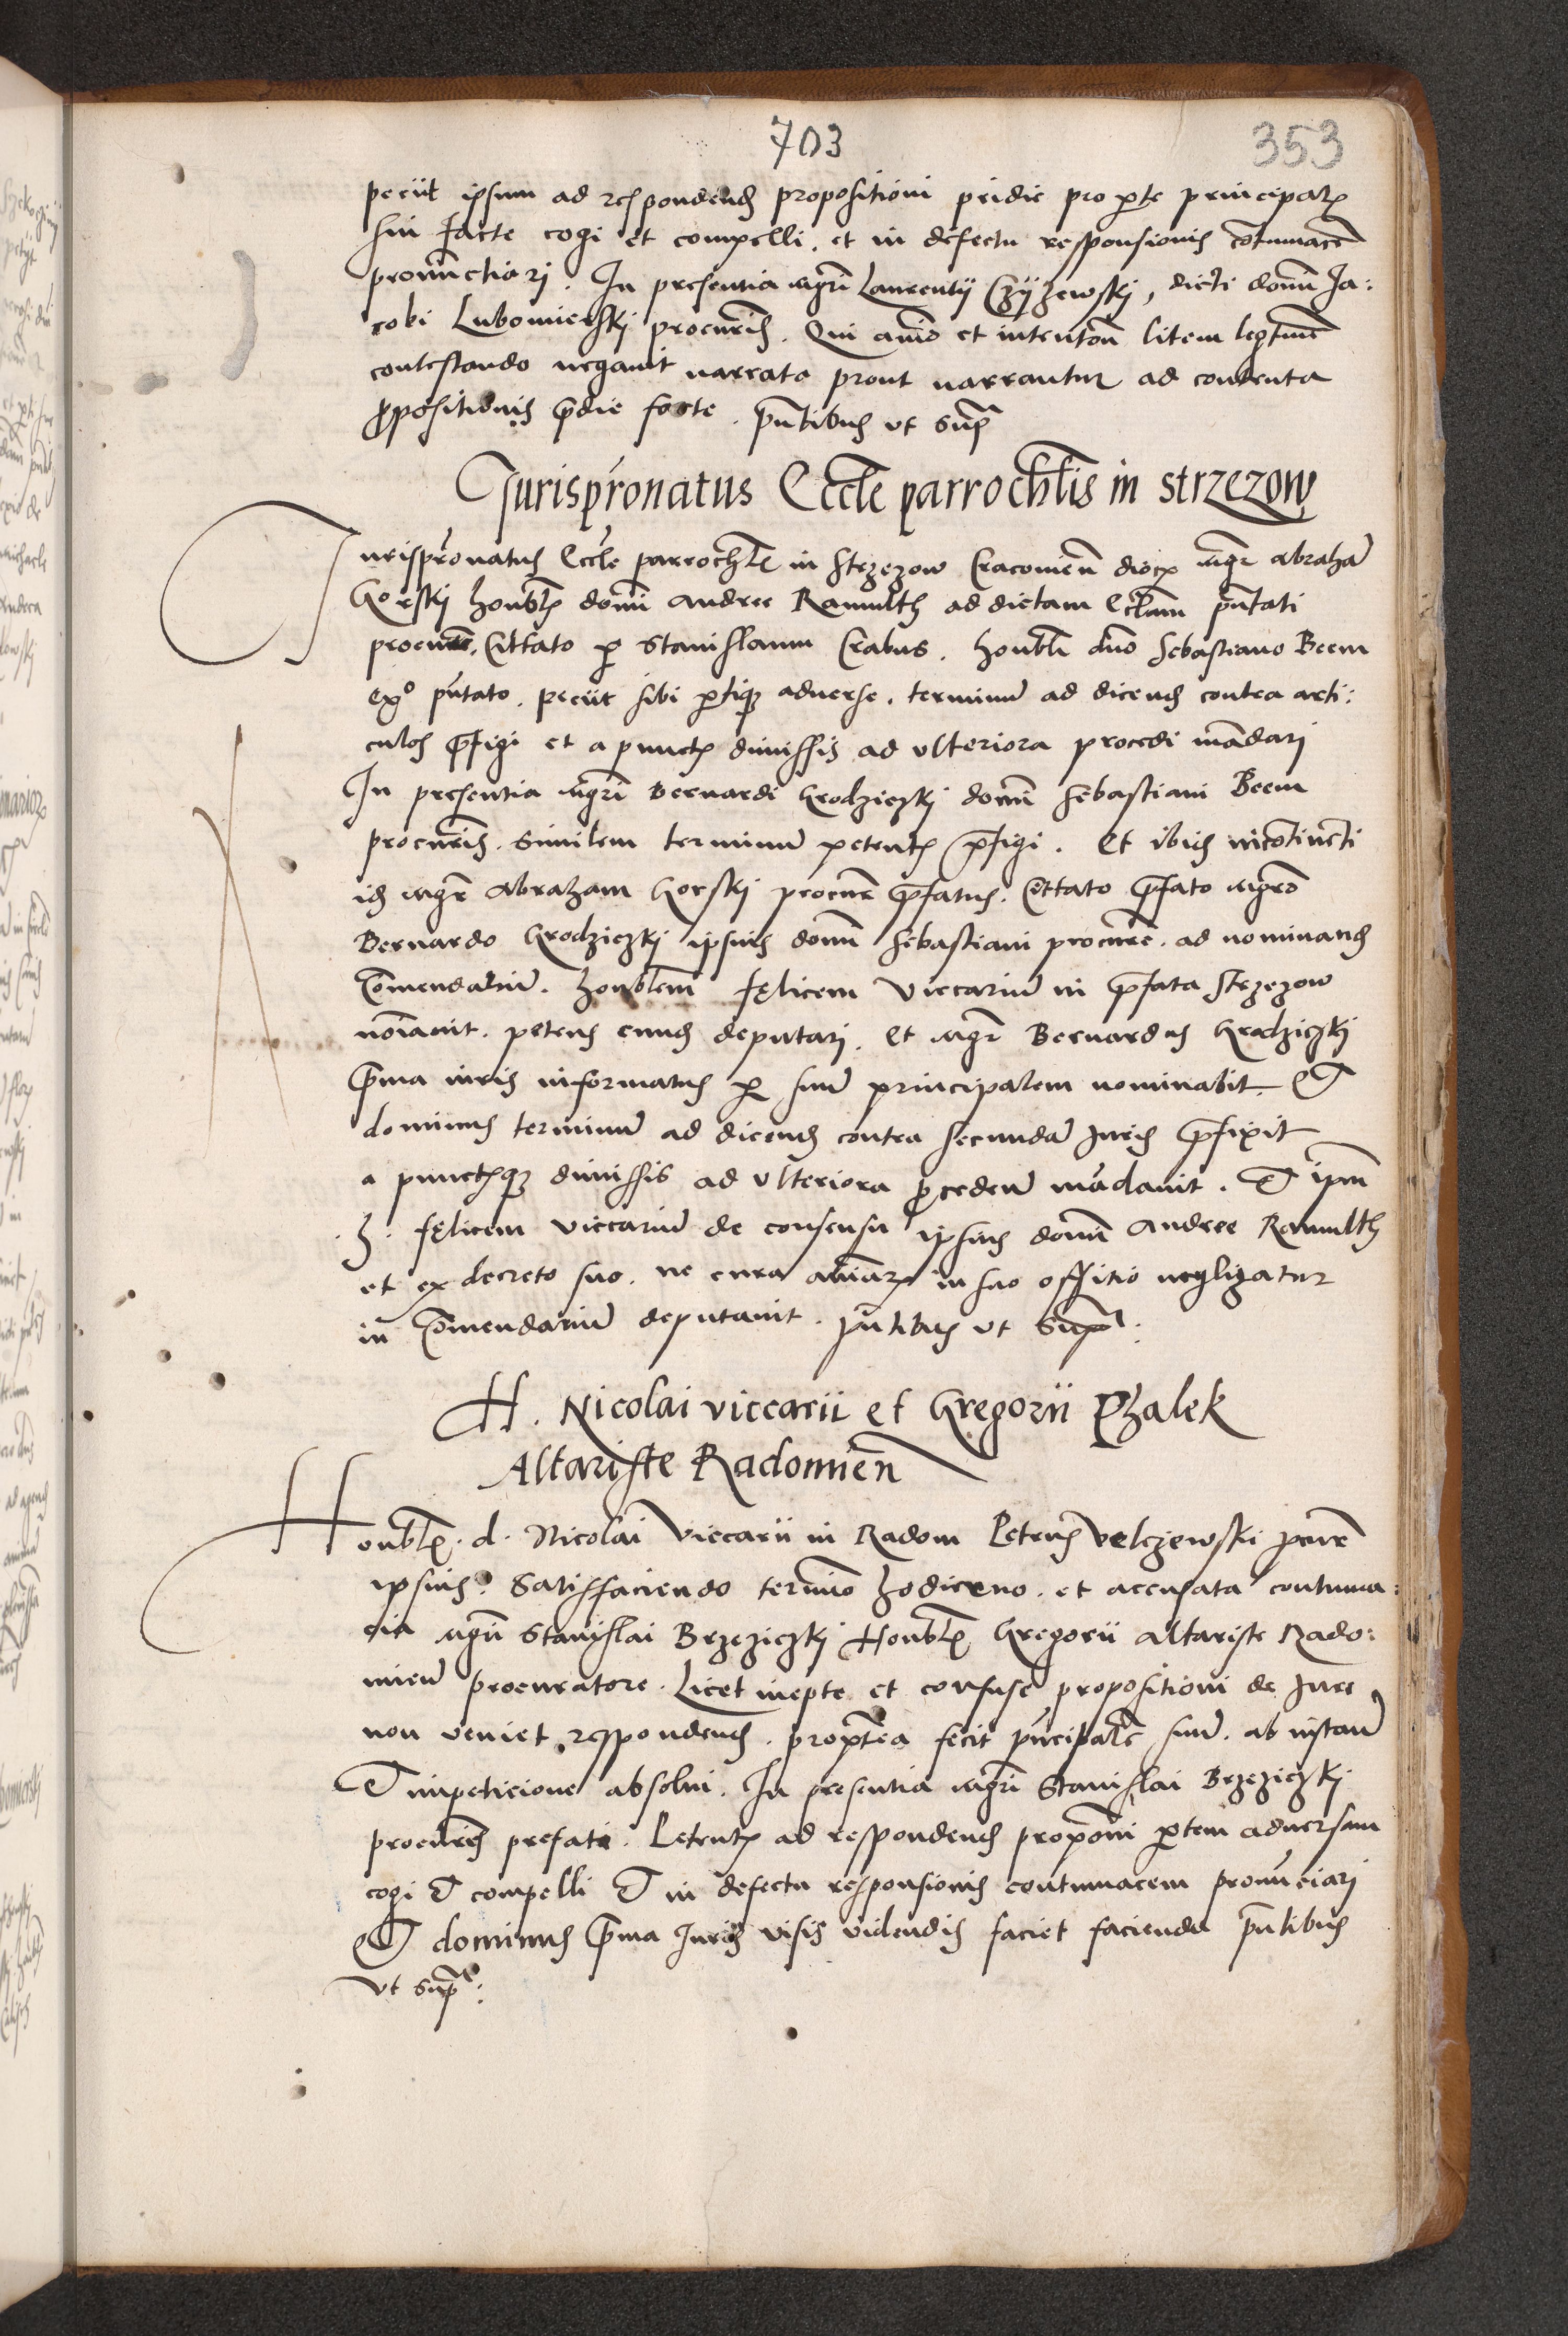 703
353
petiit ipsum ad respondend propositioni pridie pro parte principalis
sui facte cogi et compelli. et in defectu responsionis cotumacē
pronūctiari. In presentia mgri Laurentij Czyzewskj, dicti domī Ja:
cobi Lubomierskj procuris. Qui aīo et intentōn litem legtime
contestando negauit narrata prout narrantur ad contenta
propositionis pridie facte. pntibus ut supra
Jurispronatus Eccle parrochlis in strzezow
Jurisprōnatus Eccle parrochlis in Strzezow Cracouien dioc mgr abrahā
Gorskj honblis domī Andree Ramulth ad dictam Eclam pntati
procur. Cittato per Stanislaum Crabus. honbli dno Sebastiano Beem
exo pntato. petiit sibi partique aduerse. terminū ad dicend contra arti:
culos prefigi et a punctis dimissis ad vlteriora procedi mādari
In presentia mgri Bernardi Grodziczkj domi Sebastiani Beem
procuris. similem terminū petentis prefigi. Et ibid incōtinenti
id mgr Abraham Gorskj procur prefatus. Cittato prefato mgro
Bernardo Grodziczkj ipsius domi Sebastiani procure. ad nominand
Cōmendariū. honblem felicem Viccariū in prefata Strzezow
noiauit. petens eund deputari. et mgr Bernardus Grodziczkj
prima iuris informatus per suū principalem nominabit. Et
dominus terminū ad dicend contra secundā Juris prefixit
a punctisque dimissis ad vlteriora procedenū mādauit. Et ipm
h. felicem viccariū de consensu ipsius domi Andree Ramulth
et ex decreto suo. ne cura aīarum in suo offitio negligatur
in Cōmendariū deputauit. pntibus ut supra:
H. Nicolai viccarii et Gregorii Pzalek
Altariste Radomien
Honblis. d. Nicolai Viccarii in Radom Petrus Velczewski procur
ipsius. Satisfaciendo termino hodierno. et accusata contuma:
cia mgri Stanislai Brzeziczkj Honblis Gregorii Altariste Rado:
mien procuratore. Licet inepte et confuse propositioni de Jure
non veniet respondend. propterea fecit principalē suū. ab instan
Et impeticione absolui. In presentia mgri Stanislai Brzeziczkj
procuris prefati. Petentis ad respondend proponi partem aduersam
cogi Et compelli Et in defectu responsionis contumacem pronūciari
Et dominus prima Juris visis videndis faciet facienda pntibus
ut supra: